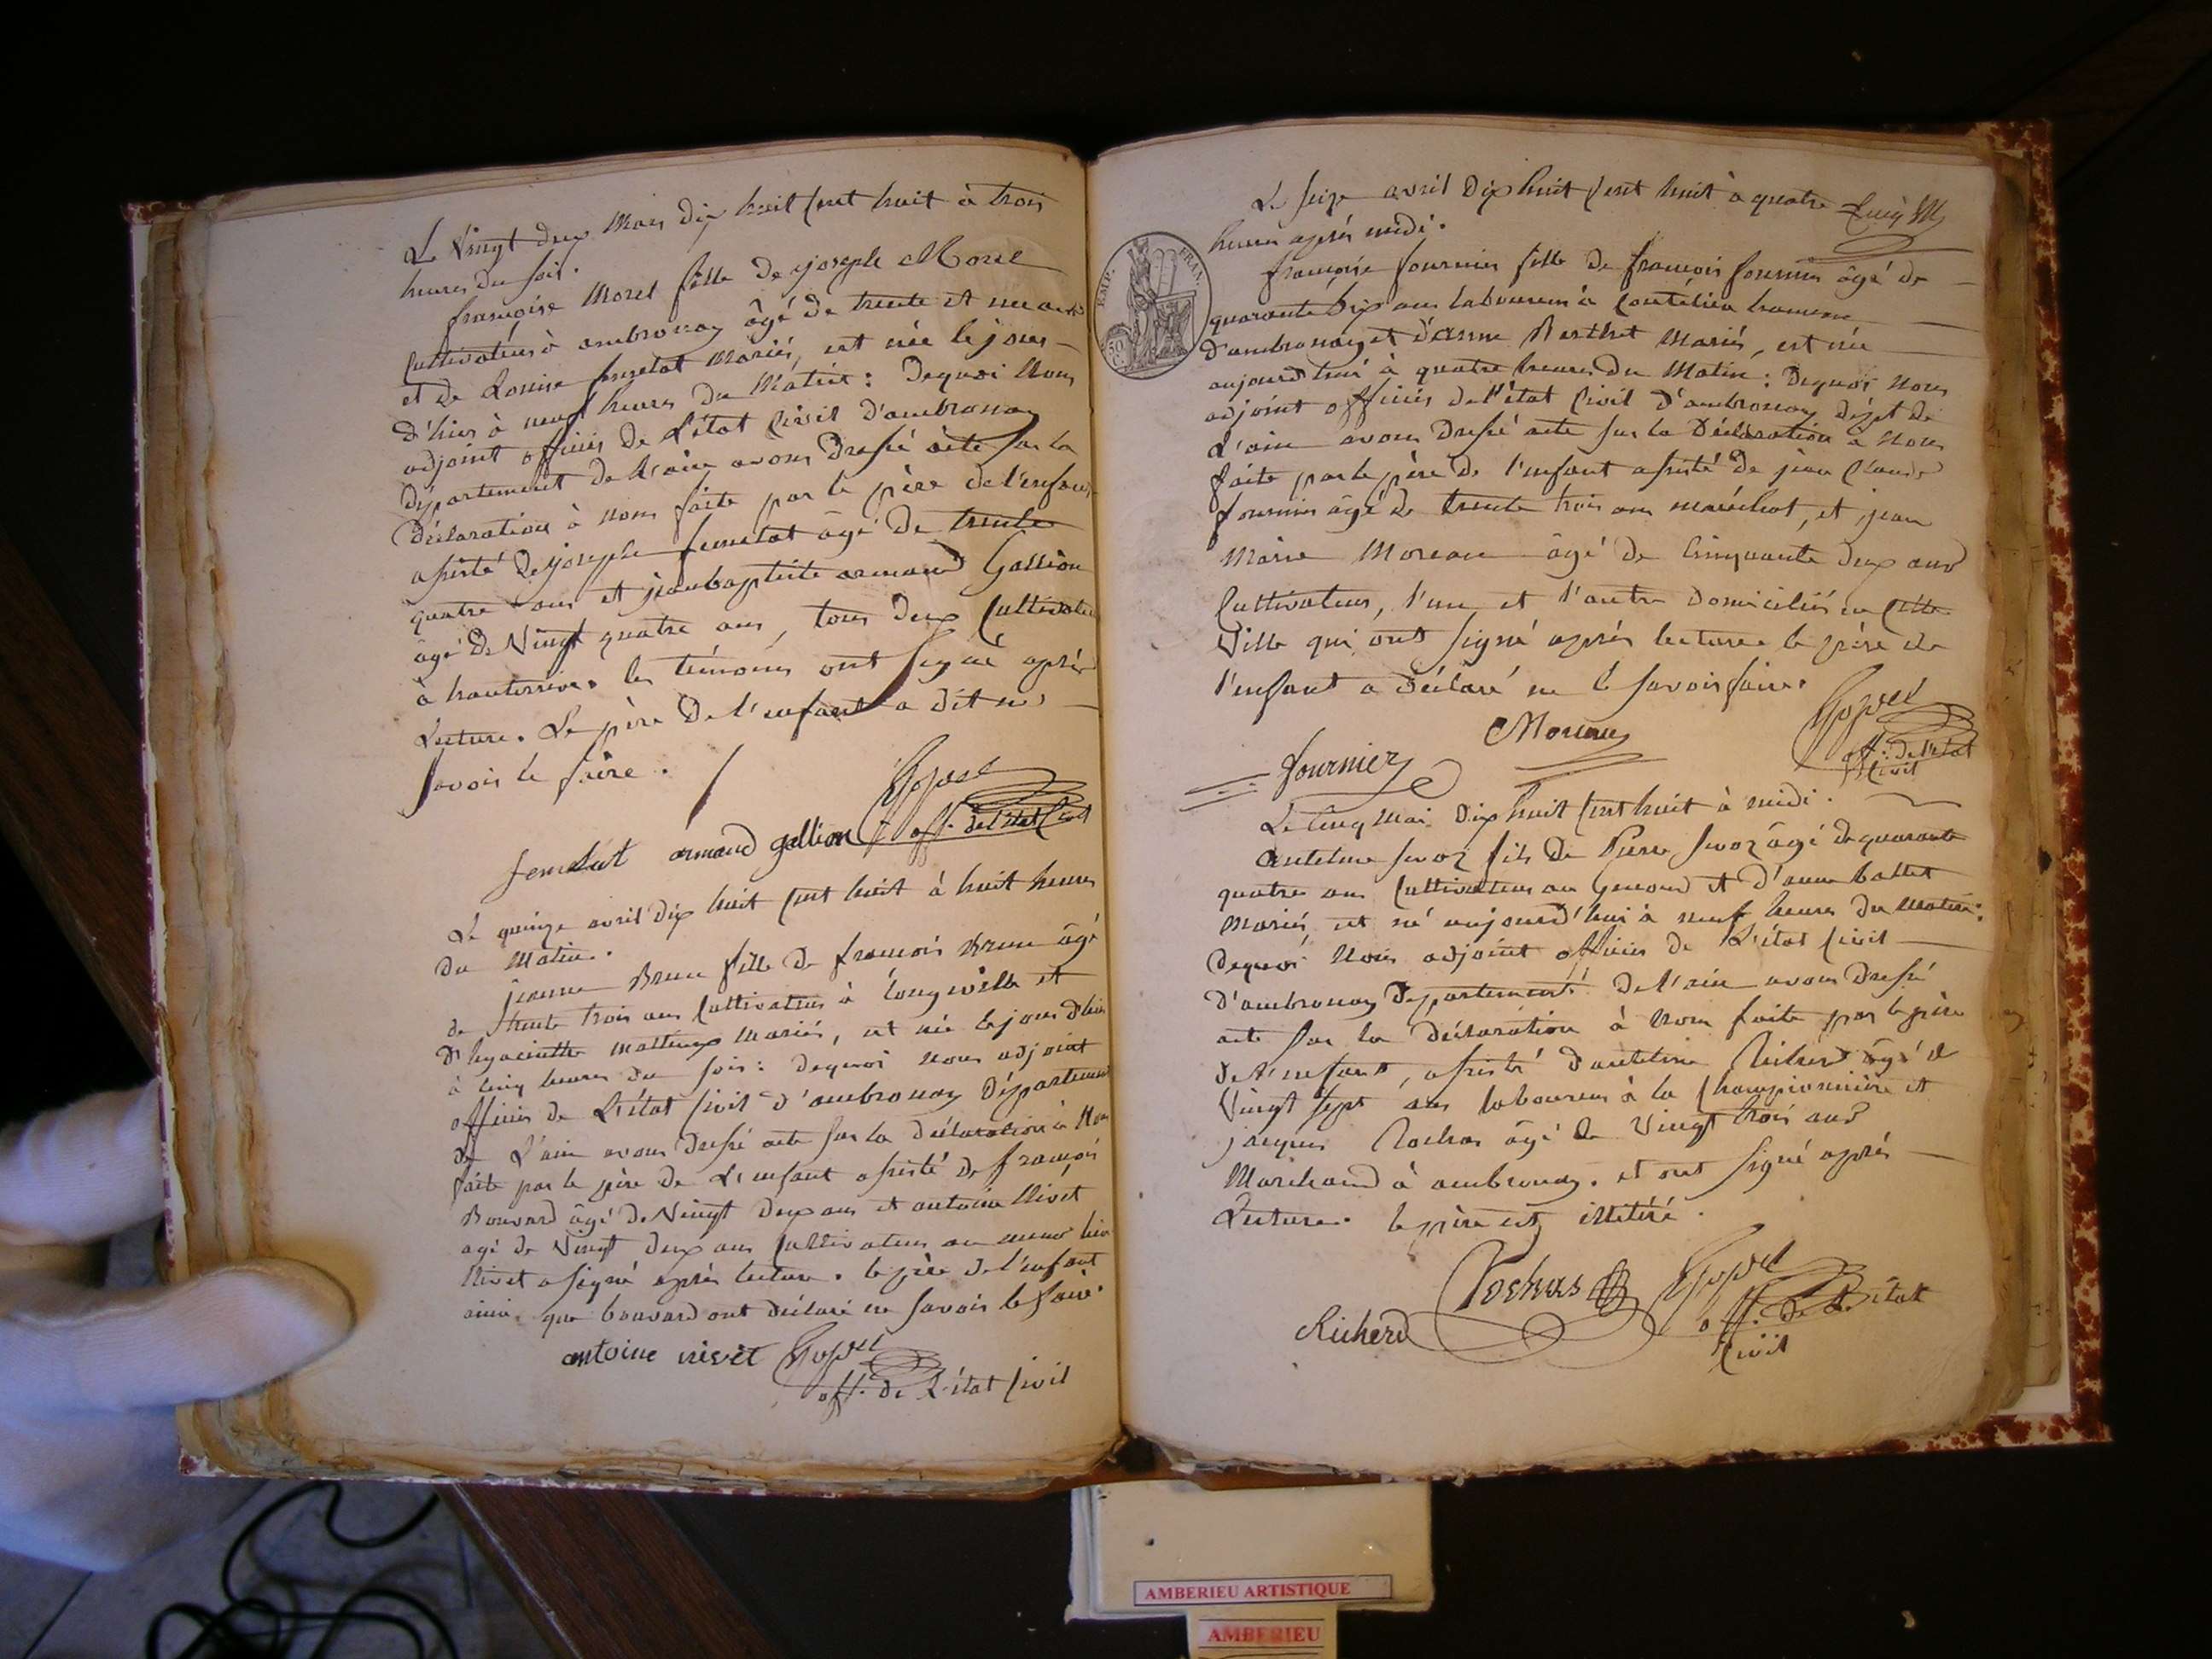 Le Vingt deux Mars dix huit Cent huit à trois
heures du soir.
françoise Morel fille de joseph Morel
Cultivateur à ambronay âgé de trente et un ans
et de Louise femelat Mariés, est née le jour
d'hier à neuf heures du Matin : Dequoi Nous
adjoint officier de L'état Civil d'ambronay
département de L'ain avons dressé acte sur la
déclaration à nous faite par le père de l'enfant
assisté de joseph femelat âgé de trente
quatre ans et jeanbaptiste armand Gallion
âgé de Vingt quatre ans, tous deux Cultivateurs
à hauterive. les témoins ont signé après
Lecture. Le père de l'enfant a dit ne
savoir le faire.
femelat armand gallion
off. de l'état Civil
Le quinze avril dix huit Cent huit à huit heures
du Matin.
jeanne Brun fille de françois Brun âgé
de trente trois ans Cultivateur à longeville et
d'hyacinthe Mathieux Mariés, est née le jour d'hier
à Cinq heures du soir : dequoi nous adjoint
officier de L'état Civil d'ambronay Département
de L'ain avons dressé acte sur la déclaration à Nous
faite par le père de L'enfant assisté de françois
Bouvard âgé de Vingt deux ans et antoine Nivet
agé de Vingt deux ans Cultivateurs au même lieu
Nivet a signé après lecture. le père de l'enfant
ainsi que bouvard ont déclaré ne savoir le faire.
antoine nivet
off. de L'état Civil
Le seize avril dix huit Cent huit à quatre
heures après midi.
EMP. FRAN.
françoise fournier fille de françois fournier âgé de
quarante six ans laboureur à Coutelieu Commune
d'ambronay et d'anne Berthet Mariés, est née
aujourd'hui à quatre heures du Matin : Dequoi Nous
adjoint officier de l'état Civil d'ambronay dépt de
L'ain avons dressé acte sur la Déclaration à Nous
faite par le père de l'enfant assisté de jean Claude
fournier âgé de trente trois ans maréchal, et jean
Marie Moreau âgé de Cinquante deux ans
Cultivateur, l'un et l'autre domiciliés en Cette
Ville qui ont signé après lecture le père de
l'enfant a déclaré ne le savoir faire.
Moreau
fournier
off. de l'état
Civil
Le Cinq Mai dix huit Cent huit à midi.
antelme fils de Pierre âgé de quarante
quatre ans Cultivateur au et d'anne ballet
Mariés, est né aujourd'hui à neuf heures du Matin :
dequoi Nous adjoint officier de L'état Civil
d'ambronay département de l'ain avons dressé
acte sur la déclaration à Nous faite par le père
de L'enfant, assisté d'antelme Richerd âgé de
Vingt sept ans laboureur à la Championnière et
jacques Rochas âgé de Vingt trois ans
Marchand à ambronay. et ont signé après
Lecture. le père est illitéré.
Rochas
Richerd
off. de L'état
Civil
AMBERIEU ARTISTIQUE
AMBERIEU